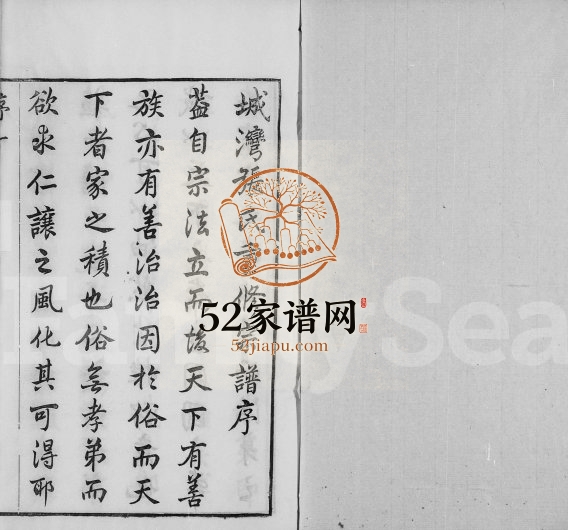 城灣張氏重修宗譜序
葢自宗法立而後天下有善
族亦有善治治因於俗而天
下者家之積也俗無孝弟而
欲求仁讓之風化其可得耶
序一
52家谱网
52jiapu.com
Family Sea